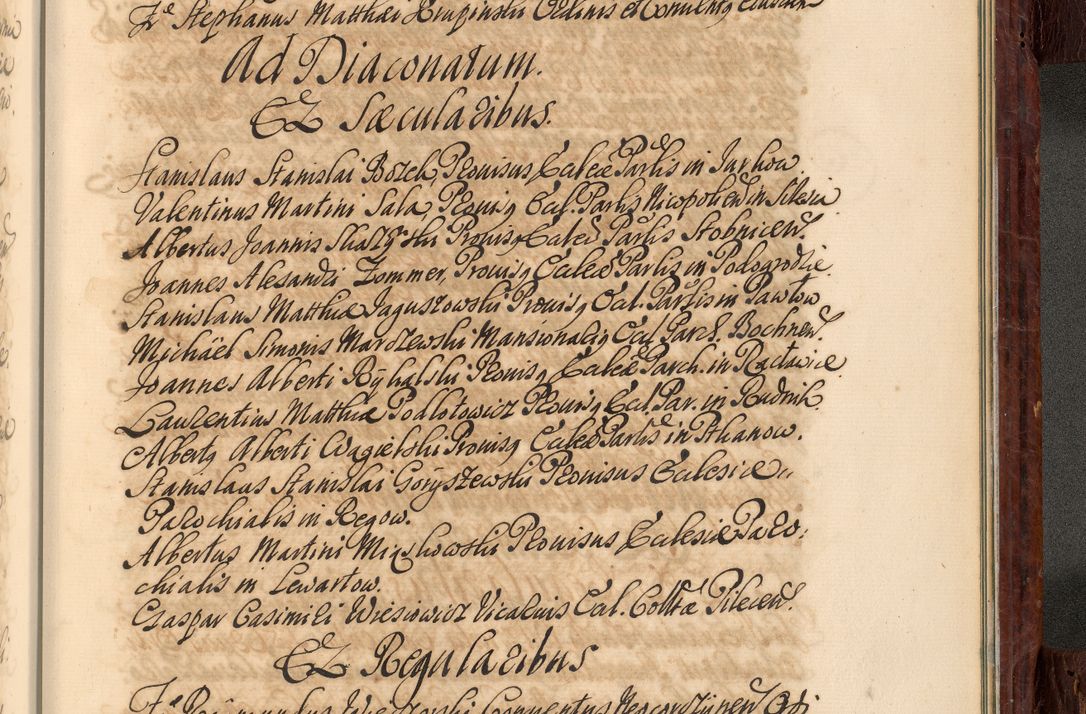 Fr. Stephanus Matthæi Krupinski Ordinis et Convent9 eiusdem
Ad Diaconatum.
Ex Sæcularibus.
Stanislaus Stanislai Bozek, Provisus Eccleæ Parlis in Jurkow.
Valentinus Martini Sala, Provis9 Ecl. Parlis Nicopolien in Silesia
Albertus Joannis Skarzyski Provis9 Eccleæ Parlis Stobnicen.
Joannes Alexandri Zommer, Provis9 Eccleæ Parlis in Podogrodzie.
Stanislaus Matthiæ Jaguszowski Provis9 Ecl. Parlis in Pawłow
Michäel Simonis Marszewski Mansionari9 Ecl. Parch. Bochnen.
Joannes Alberti Rÿhalski Provis9 Eccleæ Parch. in Racławice.
Laurentius Matthiæ Podlotowicz Provis9 Ecl. Par. in Rudnik.
Albert9 Alberti Wagielski Provis9 Eccleæ Parlis in Pthanow.
Stanislaus Stanislai Goryszewski Provisus Ecclesiæ
Parochialis in Regow.
Albertus Martini Mięskowski Provisus Ecclesiæ Paro-
chialis in Lewartow.
Gaspar Casimiri Wiesiowicz Vicarius Ecl. Colltæ Pilecen.
Ex Regularibus
Fr. Conventus